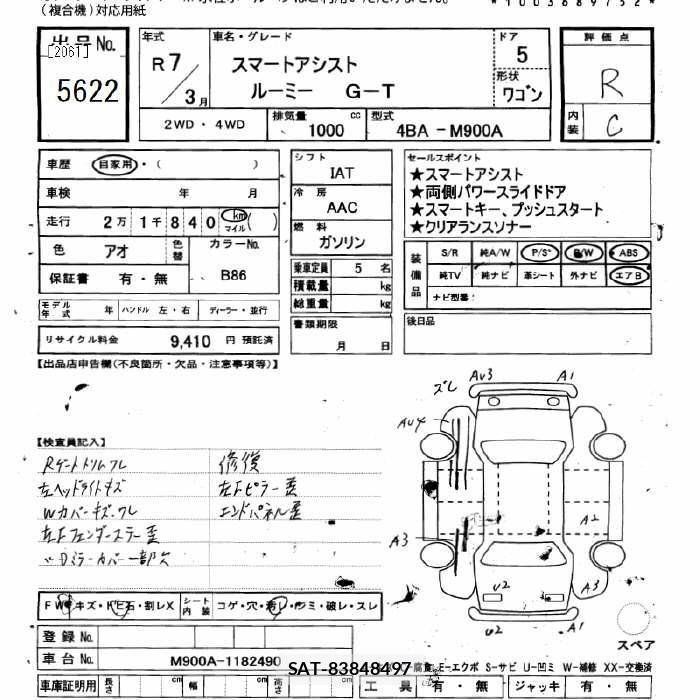 (複合機)対応用紙
*1003689752*
出品No.
[2061]
5622
年式
R7/3月
車名・グレード
スマートアシスト
ルーミー G-T
ドア
5
形状
ワゴン
評価点
R
内装
C
2WD・4WD
排気量 1000 cc
型式 4BA-M900A
車歴 自家用・( )
車検 年 月
走行 2万1千840 km マイル ( )
色 アオ
色替
カラーNo.
B86
保証書 有・無
モデル年式 年 ハンドル 左・右 ディーラー・並行
リサイクル料金 9,410 円 預託済
シフト
IAT
冷房
AAC
燃料
ガソリン
乗車定員 5 名
積載量 kg
総重量 kg
書類期限
月 日
セールスポイント
★スマートアシスト
★両側パワースライドドア
★スマートキー、プッシュスタート
★クリアランスソナー
装備品
S/R 純A/W P/S P/W ABS
純TV 純ナビ 革シート 外ナビ エアB
ナビ型番:
後日品
【出品店申告欄(不良箇所・欠品・注意事項等)】
【検査員記入】
Rゲートトリムワレ
左ヘッドライトキズ
Wカバーキズ・ワレ
左Fフェンダーステー歪
〃Dミラーカバー一部欠
修復
左Fピラー歪
エンドパネル歪
ズレ
AU3
A1
AU4
A3
A2
A3
U2
U2
A1
スペア
FW キズ・トビ石・割レX
シート内装 コゲ・穴・汚レ・シミ・破レ・スレ
登録No.
車台No. M900A-1182490
SAT-83848497
腐食 E-エクボ S-サビ U-凹ミ W-補修 XX-交換済
車庫証明用 長さ cm 幅 cm 高さ cm
工具 有・無 ジャッキ 有・無